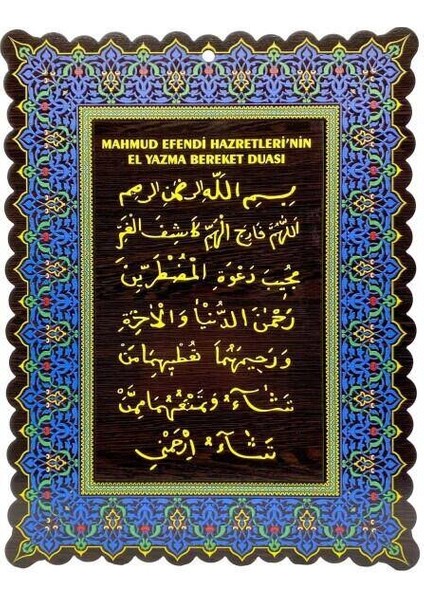 MAHMUD EFENDİ HAZRETLERİ'NİN
EL YAZMA BEREKET DUASI
بِسْمِ اللَّهِ الرَّحْمٰنِ الرَّحِيمِ
اَللّٰهُمَّ فَارِجَ الْهَمِّ كَاشِفَ الْغَمِّ
مُجِيبَ دَعْوَةِ الْمُضْطَرِّينَ
رَحْمٰنَ الدُّنْيَا وَالْاٰخِرَةِ
وَرَحِيمَهُمَا تُعْطِيهِمَا مَنْ
تَشَاءُ وَتَمْنَعُهُمَا مِمَّنْ
تَشَاءُ اِرْحَمْنِي